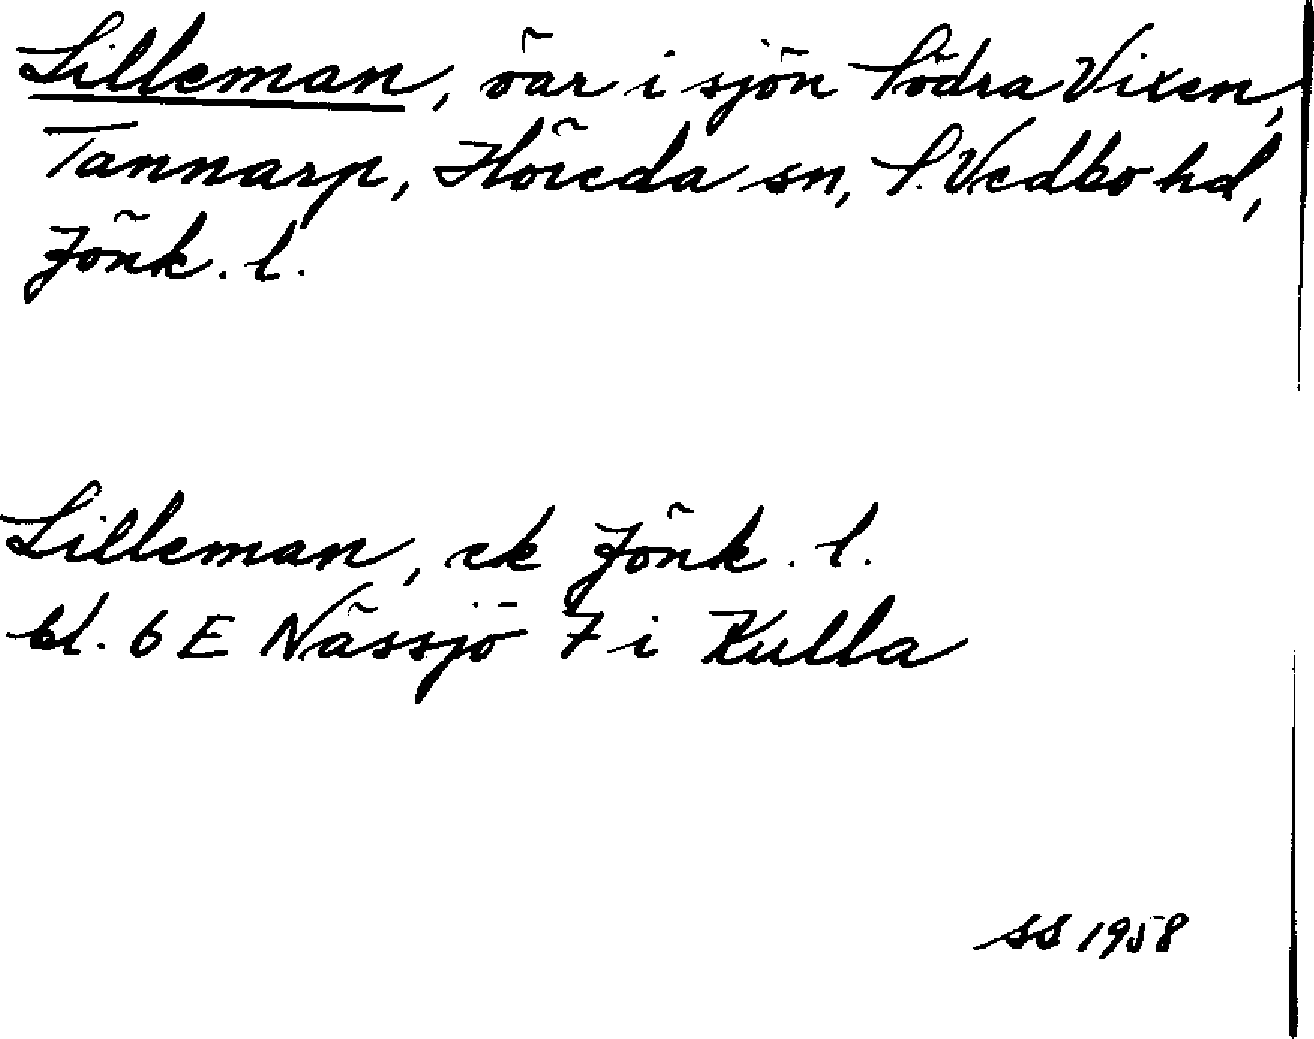 Lilleman, öar i sjön Södra Vixen,
Tannarp, Höreda sn, S. Vedbo hd,
Jönk. l.
Lilleman, ek Jönk. l.
bl. 6 E Nässjö 7 i Kulla
SS 1958